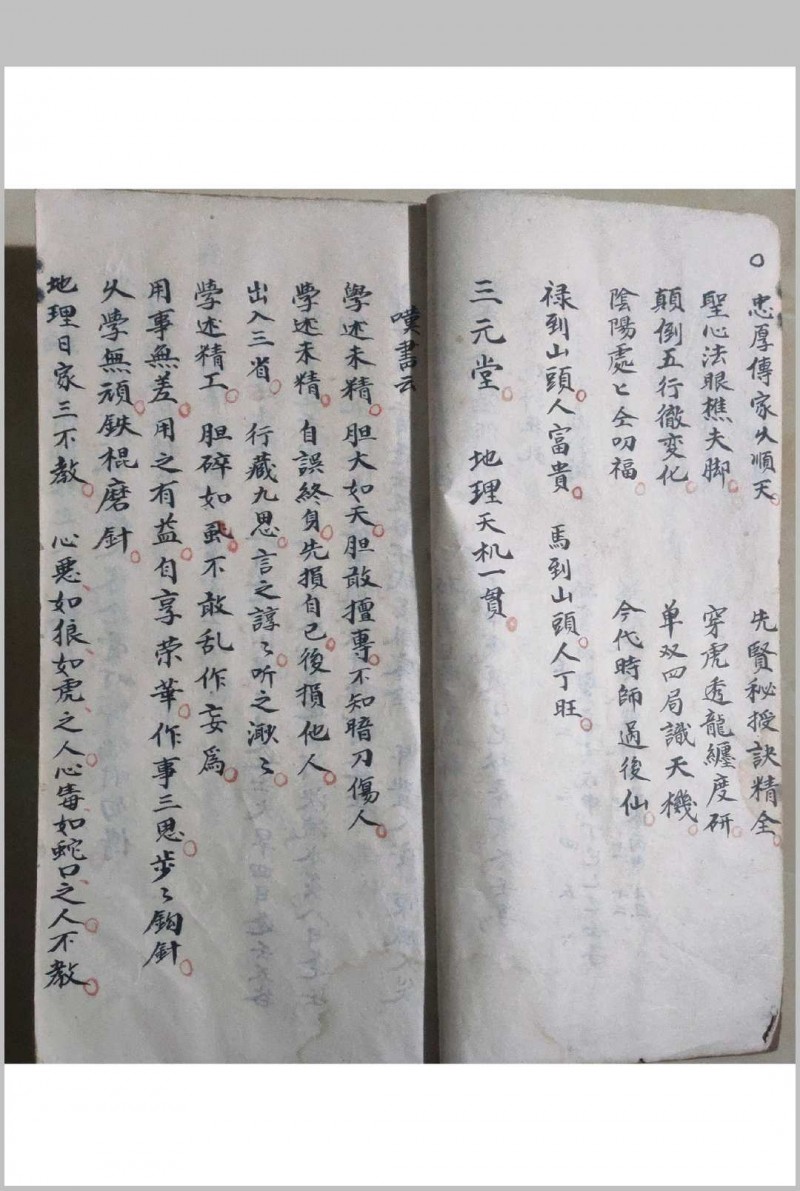 ○ 忠厚傳家久順天。 先賢秘授訣精全。
聖心法眼樵夫脚。 穿虎透龍纏度研。
顛倒五行徹変化。 单双四局識天機。
陰陽處〻仝叨福。 今代時師過後仙。
禄到山頭人富貴。 馬到山頭人丁旺。
三元堂。 地理天机一貫。
嘆書云
學述未精。胆大如天。胆敢擅專。不知暗刀傷人。
學述未精。自誤終身。先損自己。後損他人。
出入三省。行藏九思。言之諄〻。听之漱〻。
學述精工。胆碎如虱。不敢乱作妄為。
用事無差。用之有益。自享荣華。作事三思。步〻鈎針。
久學無頑。鉄棍磨針。
地理日家三不教。心悪如狼如虎之人。心毒如蛇口之人不教。